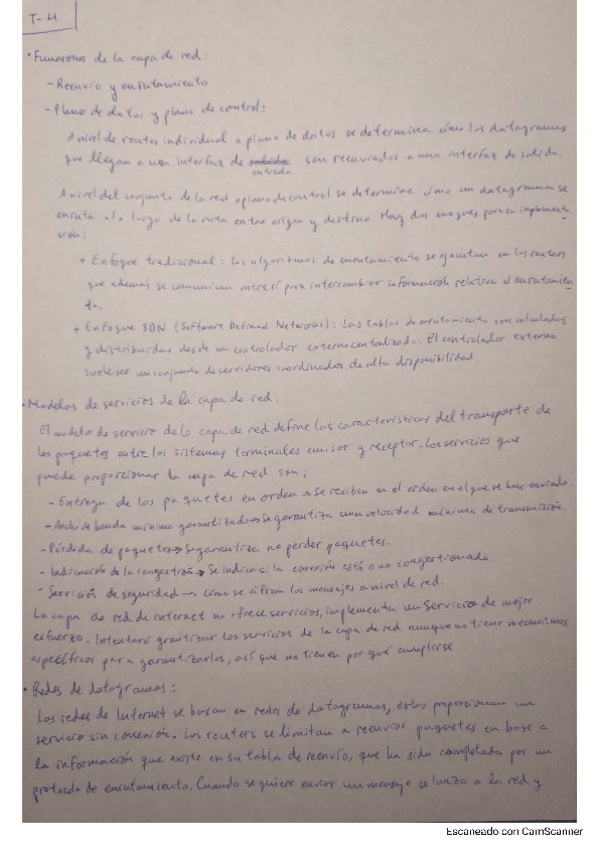 T-4
• Funciones de la capa de red:
- Reenvío y enrutamiento
- Plano de datos y plano de control:
A nivel de router individual o plano de datos se determina cómo los datagramas
que llegan a una interfaz de salida son reenviados a una interfaz de salida.
entrada
A nivel del conjunto de la red o plano de control se determina cómo un datagrama se
enruta a lo largo de la ruta entre origen y destino. Hay dos enfoques para su implementa
ción:
+ Enfoque tradicional: los algoritmos de enrutamiento se ejecutan en los routers
que además se comunican entre sí para intercambiar información relativa al enrutamien
to.
+ Enfoque SDN (Software Defined Networks): Las tablas de enrutamiento son calculadas
y distribuidas desde un controlador externo centralizado. El controlador externo
suele ser un conjunto de servidores coordinados de alta disponibilidad.
• Modelos de servicios de la capa de red:
El modelo de servicio de la capa de red define las características del transporte de
los paquetes entre los sistemas terminales emisor y receptor. Los servicios que
puede proporcionar la capa de red son:
- Entrega de los paquetes en orden → Se reciben en el orden en el que se han enviado.
- Ancho de banda mínimo garantizado → Se garantiza una velocidad mínima de transmisión.
- Pérdida de paquetes → Se garantiza no perder paquetes.
- Indicación de la congestión → Se indica si la conexión está o no congestionada.
- Servicios de seguridad → Cómo se cifran los mensajes a nivel de red.
La capa de red de internet no ofrece servicios, implementa un Servicio de mejor
esfuerzo. Intentará grantizar los servicios de la capa de red aunque no tiene mecanismos
específicos para garantizarlos, así que no tienen por qué cumplirse.
• Redes de datagramas:
Las redes de Internet se basan en redes de datagramas, estas proporcionan un
servicio sin conexión. Los routers se limitan a reenviar paquetes en base a
la información que existe en su tabla de reenvío, que ha sido completada por un
protocolo de enrutamiento. Cuando se quiere enviar un mensaje se lanza a la red y
Escaneado con CamScanner